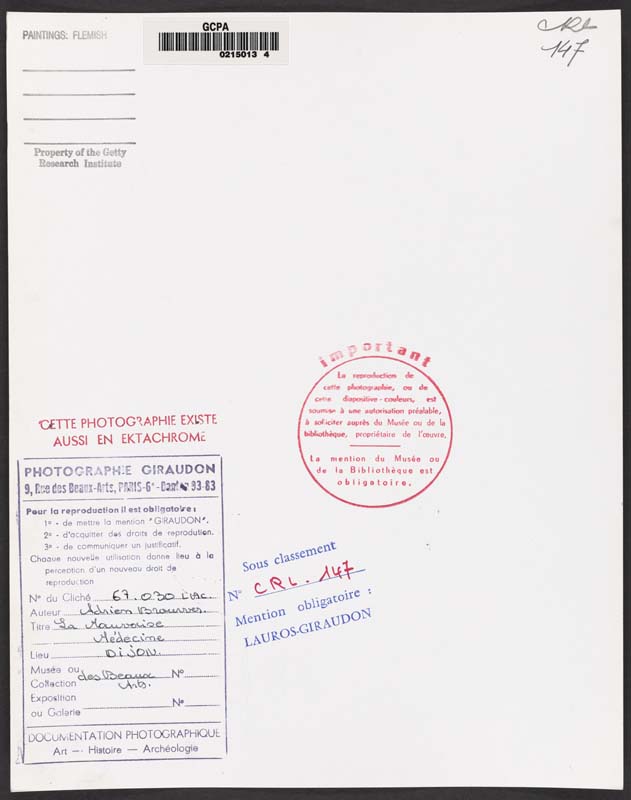 PAINTINGS: FLEMISH
GCPA
0215013 4
CRL
147
Property of the Getty
Research Institute
important
La reproduction de
cette photographie, ou de
cette diapositive-couleurs, est
soumise à une autorisation préalable,
à solliciter auprès du Musée ou de la
bibliothèque, propriétaire de l'œuvre.
La mention du Musée ou
de la Bibliothèque est
obligatoire.
CETTE PHOTOGRAPHIE EXISTE
AUSSI EN EKTACHROME
PHOTOGRAPHIE GIRAUDON
9, Rue des Beaux-Arts, PARIS-6e - Dant 93-83
Pour la reproduction il est obligatoire :
1º - de mettre la mention "GIRAUDON".
2º - d'acquitter des droits de reprodution.
3º - de communiquer un justificatif.
Chaque nouvelle utilisation donne lieu à la
perception d'un nouveau droit de
reproduction
Nº du Cliché 67.030 LAC.
Auteur Adrien Brouwer.
Titre La Mauvaise
Médecine
Lieu DIJON.
Musée ou des Beaux Nº
Collection Arts.
Exposition
ou Galerie Nº
DOCUMENTATION PHOTOGRAPHIQUE
Art — Histoire — Archéologie
Sous classement
Nº CRL. 147
Mention obligatoire :
LAUROS-GIRAUDON